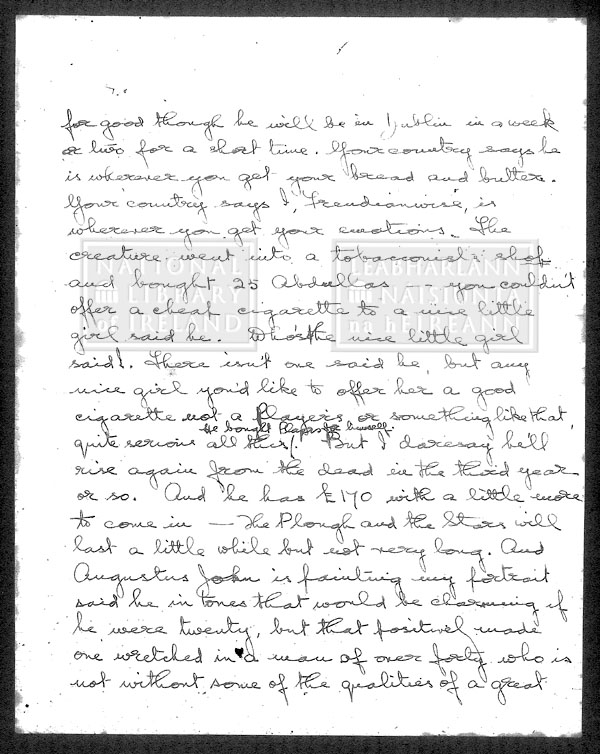 for good though he will be in Dublin in a week
or two for a short time. Your country says he
is wherever you get your bread and butter.
Your country, says I, Freudianwise, is
wherever you get your emotions. The
creature went into a tobacconist's shop
and bought 25 Abdullas -- you couldn't
offer a cheap cigarette to a nice little
girl said he. Who's the nice little girl
said I. There isn't one said he, but any
nice girl you'd like to offer her a good
cigarette not a Players, or something like that,
he bought Players for himself.
quite serious all this! But I daresay he'll
rise again from the dead in the third year
or so. And he has £170 with a little more
to come in — The Plough and the Stars will
last a little while but not very long. And
Augustus John is painting my portrait
said he in tones that would be charming if
he were twenty, but that positively made
one wretched in a man of over forty who is
not without some of the qualities of a great
NATIONAL
LIBRARY
of IRELAND
LEABHARLANN
NÁISIÚNTA
na hÉIREANN